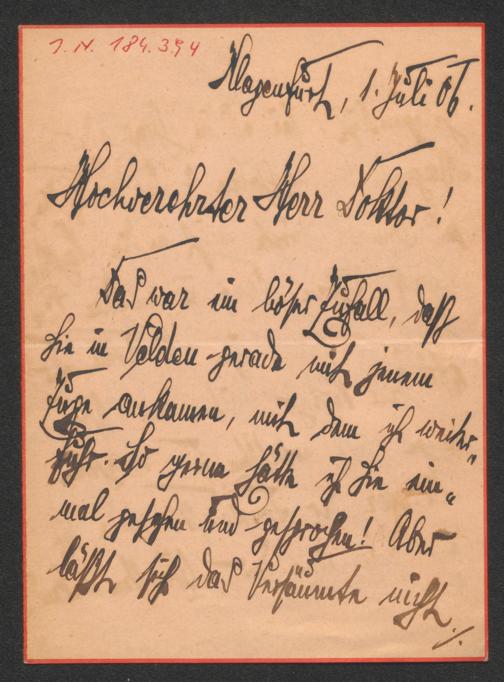 J. N. 184.394
Klagenfurt, 1. Juli 06.
Hochverehrter Herr Doktor!
Das war ein böser Zufall, daß
Sie in Velden gerade mit jenem
Zuge ankamen, mit dem ich weiter„
fuhr. So gerne hätte ich Sie ein„
mal gesehen und gesprochen! Aber
läßt sich das Versäumte nicht
./.